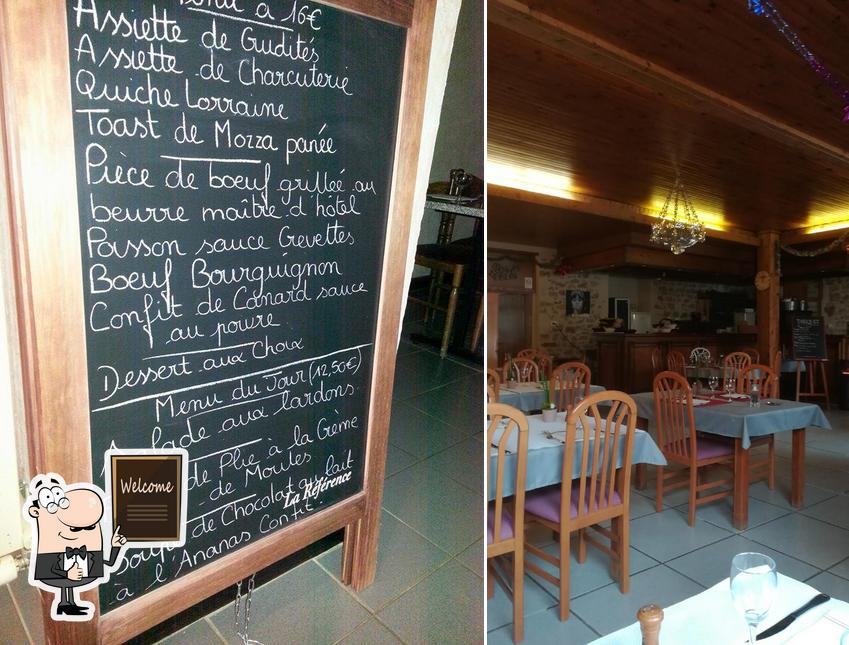 à 16€
Assiette de Crudités
Assiette de Charcuterie
Quiche Lorraine
Toast de Mozza panée
Pièce de boeuf grilleé au
beurre maître d'hôtel
Poisson sauce Crevettes
Boeuf Bourguignon
Confit de Canard sauce
au poivre
Dessert aux Choix
Menu du Jour (12,50€)
aux lardons
de Plie à la Crème
de Moules
de Chocolat au lait
à l'Ananas Confit.
La Référence
Welcome